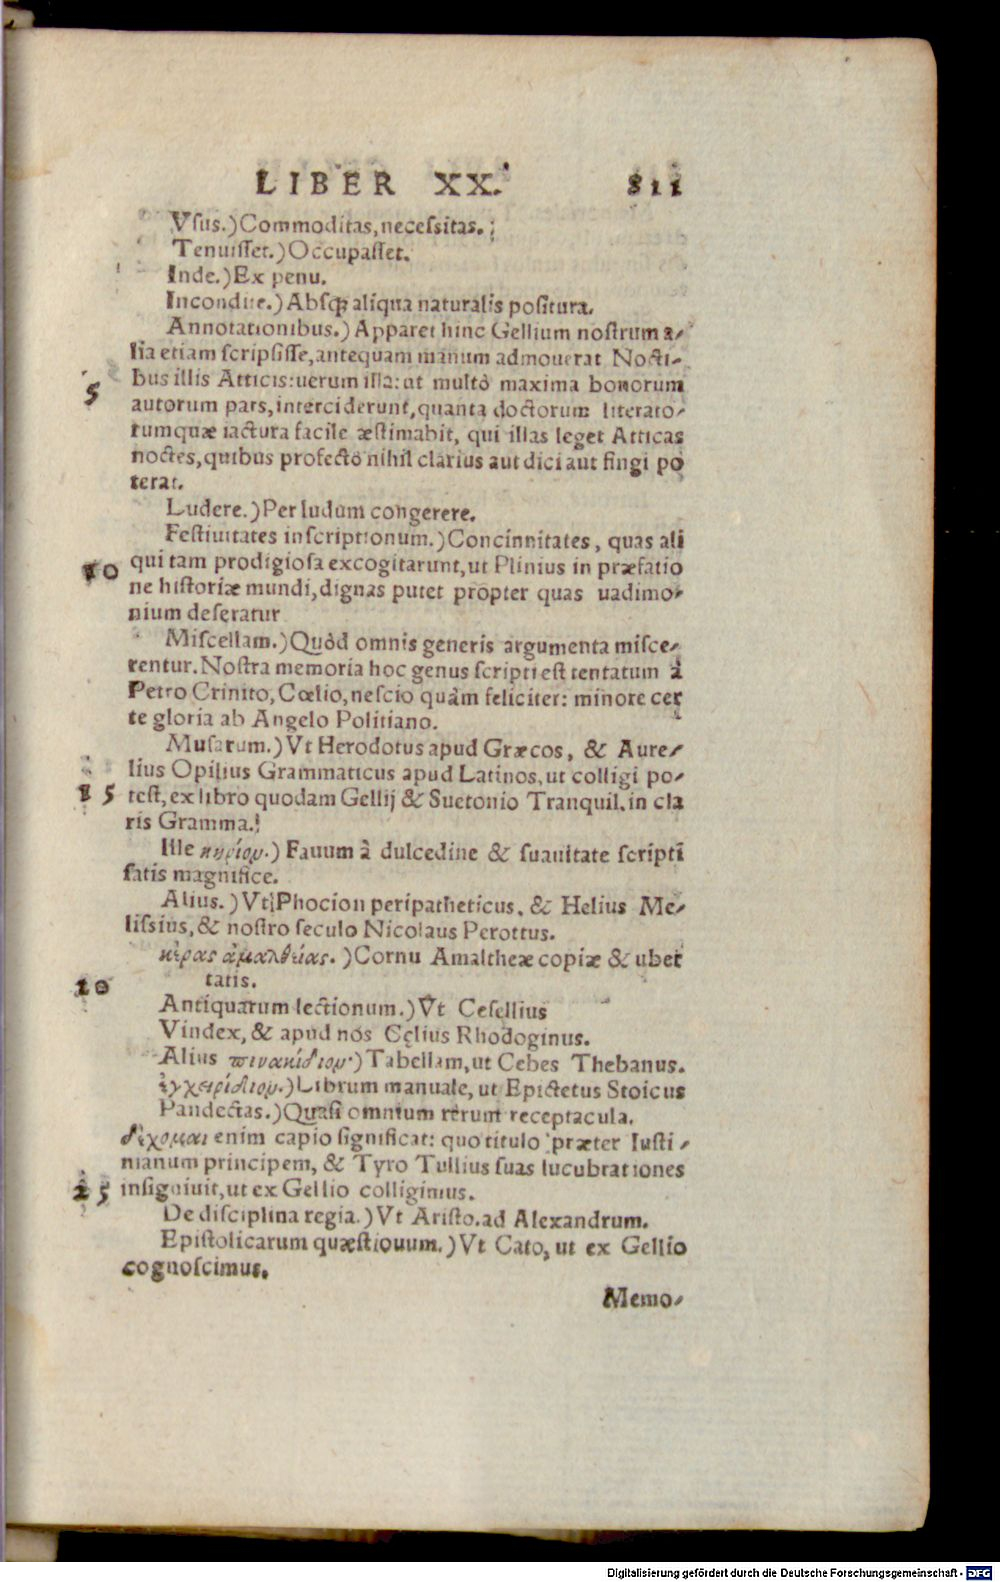 LIBER XX. 811
Vsus.) Commoditas, necessitas.
Tenuisset.) Occupasset.
Inde.) Ex penu.
Incondite.) Absq; aliqua naturalis positura.
Annotationibus.) Apparet hinc Gellium nostrum a-
lia etiam scripsisse, antequam manum admouerat Nocti-
bus illis Atticis: uerum illa: ut multò maxima bonorum
5
autorum pars, interciderunt, quanta doctorum literato-
rumquæ iactura facile æstimabit, qui illas leget Atticas
noctes, quibus profectò nihil clarius aut dici aut fingi po
terat.
Ludere.) Per ludum congerere.
Festiuitates inscriptionum.) Concinnitates, quas ali
10
qui tam prodigiosa excogitarunt, ut Plinius in præfatio
ne historiæ mundi, dignas putet propter quas uadimo-
nium deseratur
Miscellam.) Quòd omnis generis argumenta misce-
rentur. Nostra memoria hoc genus scripti est tentatum à
Petro Crinito, Cœlio, nescio quàm feliciter: minore cer
te gloria ab Angelo Politiano.
Musarum.) Vt Herodotus apud Græcos, & Aure-
lius Opilius Grammaticus apud Latinos, ut colligi po-
15
test, ex libro quodam Gellij & Suetonio Tranquil. in cla
ris Gramma.
Ille κηρίον.) Fauum à dulcedine & suauitate scripti
satis magnifice.
Alius.) Vt Phocion peripatheticus, & Helius Me-
lissius, & nostro seculo Nicolaus Perottus.
κέρας ἀμαλθείας.) Cornu Amaltheæ copiæ & uber
20
tatis.
Antiquarum lectionum.) Vt Cesellius
Vindex, & apud nos Cęlius Rhodoginus.
Alius πινακίδιον) Tabellam, ut Cebes Thebanus.
ἐγχειρίδιον.) Librum manuale, ut Epictetus Stoicus
Pandectas.) Quasi omnium rerum receptacula.
δέχομαι enim capio significat: quo titulo præter Iusti-
nianum principem, & Tyro Tullius suas lucubrationes
25
insigniuit, ut ex Gellio colligimus.
De disciplina regia.) Vt Aristo. ad Alexandrum.
Epistolicarum quæstiouum.) Vt Cato, ut ex Gellio
cognoscimus.
Memo-
Digitalisierung gefördert durch die Deutsche Forschungsgemeinschaft - DFG